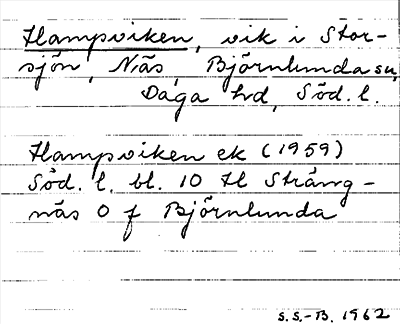 Hampviken, vik i Stor-
sjön, Näs, Björnlunda sn,
Daga hd, Söd. l.
Hampviken ek (1959)
Söd. l. bl. 10 H Sträng-
näs O f Björnlunda
S.S.-B. 1962